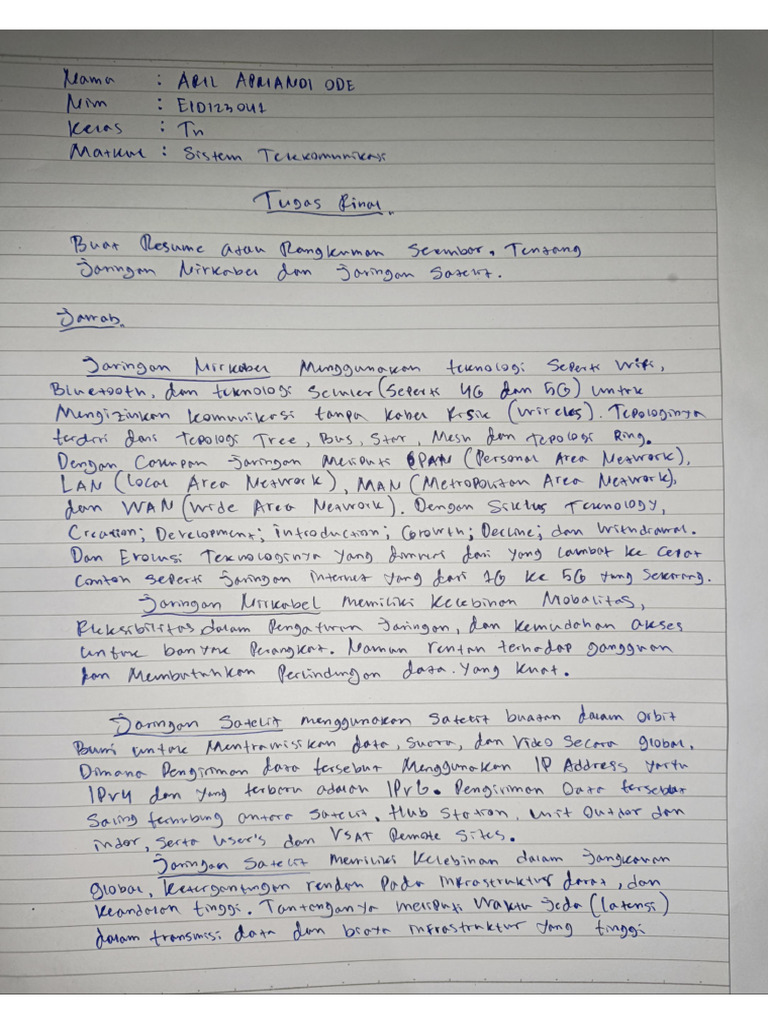 Nama : ARIL APRIANDI ODE
Nim : E1D123041
Kelas : TN
Matkul : Sistem Telekomunikasi
Tugas Final.
Buat Resume atau Rangkuman Selembar. Tentang
Jaringan Nirkabel dan Jaringan Satelit.
Jawab.
Jaringan Nirkabel Menggunakan teknologi Seperti Wifi,
Bluetooth, dan teknologi Seluler (Seperti 4G dan 5G) untuk
Mengizinkan komunikasi tanpa kabel Fisik (Wireles). Topologinya
terdiri dari Topologi Tree, Bus, Star, Mesh dan topologi Ring.
Dengan Cakupan Jaringan Meliputi PAN (Personal Area Network),
LAN (Local Area Network), MAN (Metropolitan Area Network),
dan WAN (Wide Area Network). Dengan Siklus Teknology,
Creation; Development; introduction; Growth; Decline; dan Withdrawal.
Dan Evolusi Teknologinya Yang dimulai dari yang lambat ke cepat
Contoh seperti Jaringan internet yang dari 1G ke 5G yang Sekarang.
Jaringan Nirkabel memiliki kelebihan Mobalitas,
Fleksibilitas dalam Pengaturan Jaringan, dan kemudahan akses
untuk banyak Perangkat. Namun rentan terhadap gangguan
dan Membutuhkan Perlindungan data. yang kuat.
Jaringan Satelit menggunakan Satelit buatan dalam orbit
Bumi untuk Mentramisikan data, Suara, dan Video Secara global.
Dimana Pengiriman data tersebut Menggunakan IP Address yaitu
IPv4 dan yang terbaru adalah IPv6. Pengiriman Data tersebut
Saling terhubung antara Satelit, Hub Station, Unit Outdor dan
indor, Serta User's dan VSAT Remote Sites.
Jaringan Satelit memiliki kelebihan dalam Jangkauan
global, ketergantungan rendah Pada infrastruktur darat, dan
keandalan tinggi. Tantanganya meliputi Waktu Jeda (latensi)
dalam transmisi data dan biaya infrastruktur yang tinggi